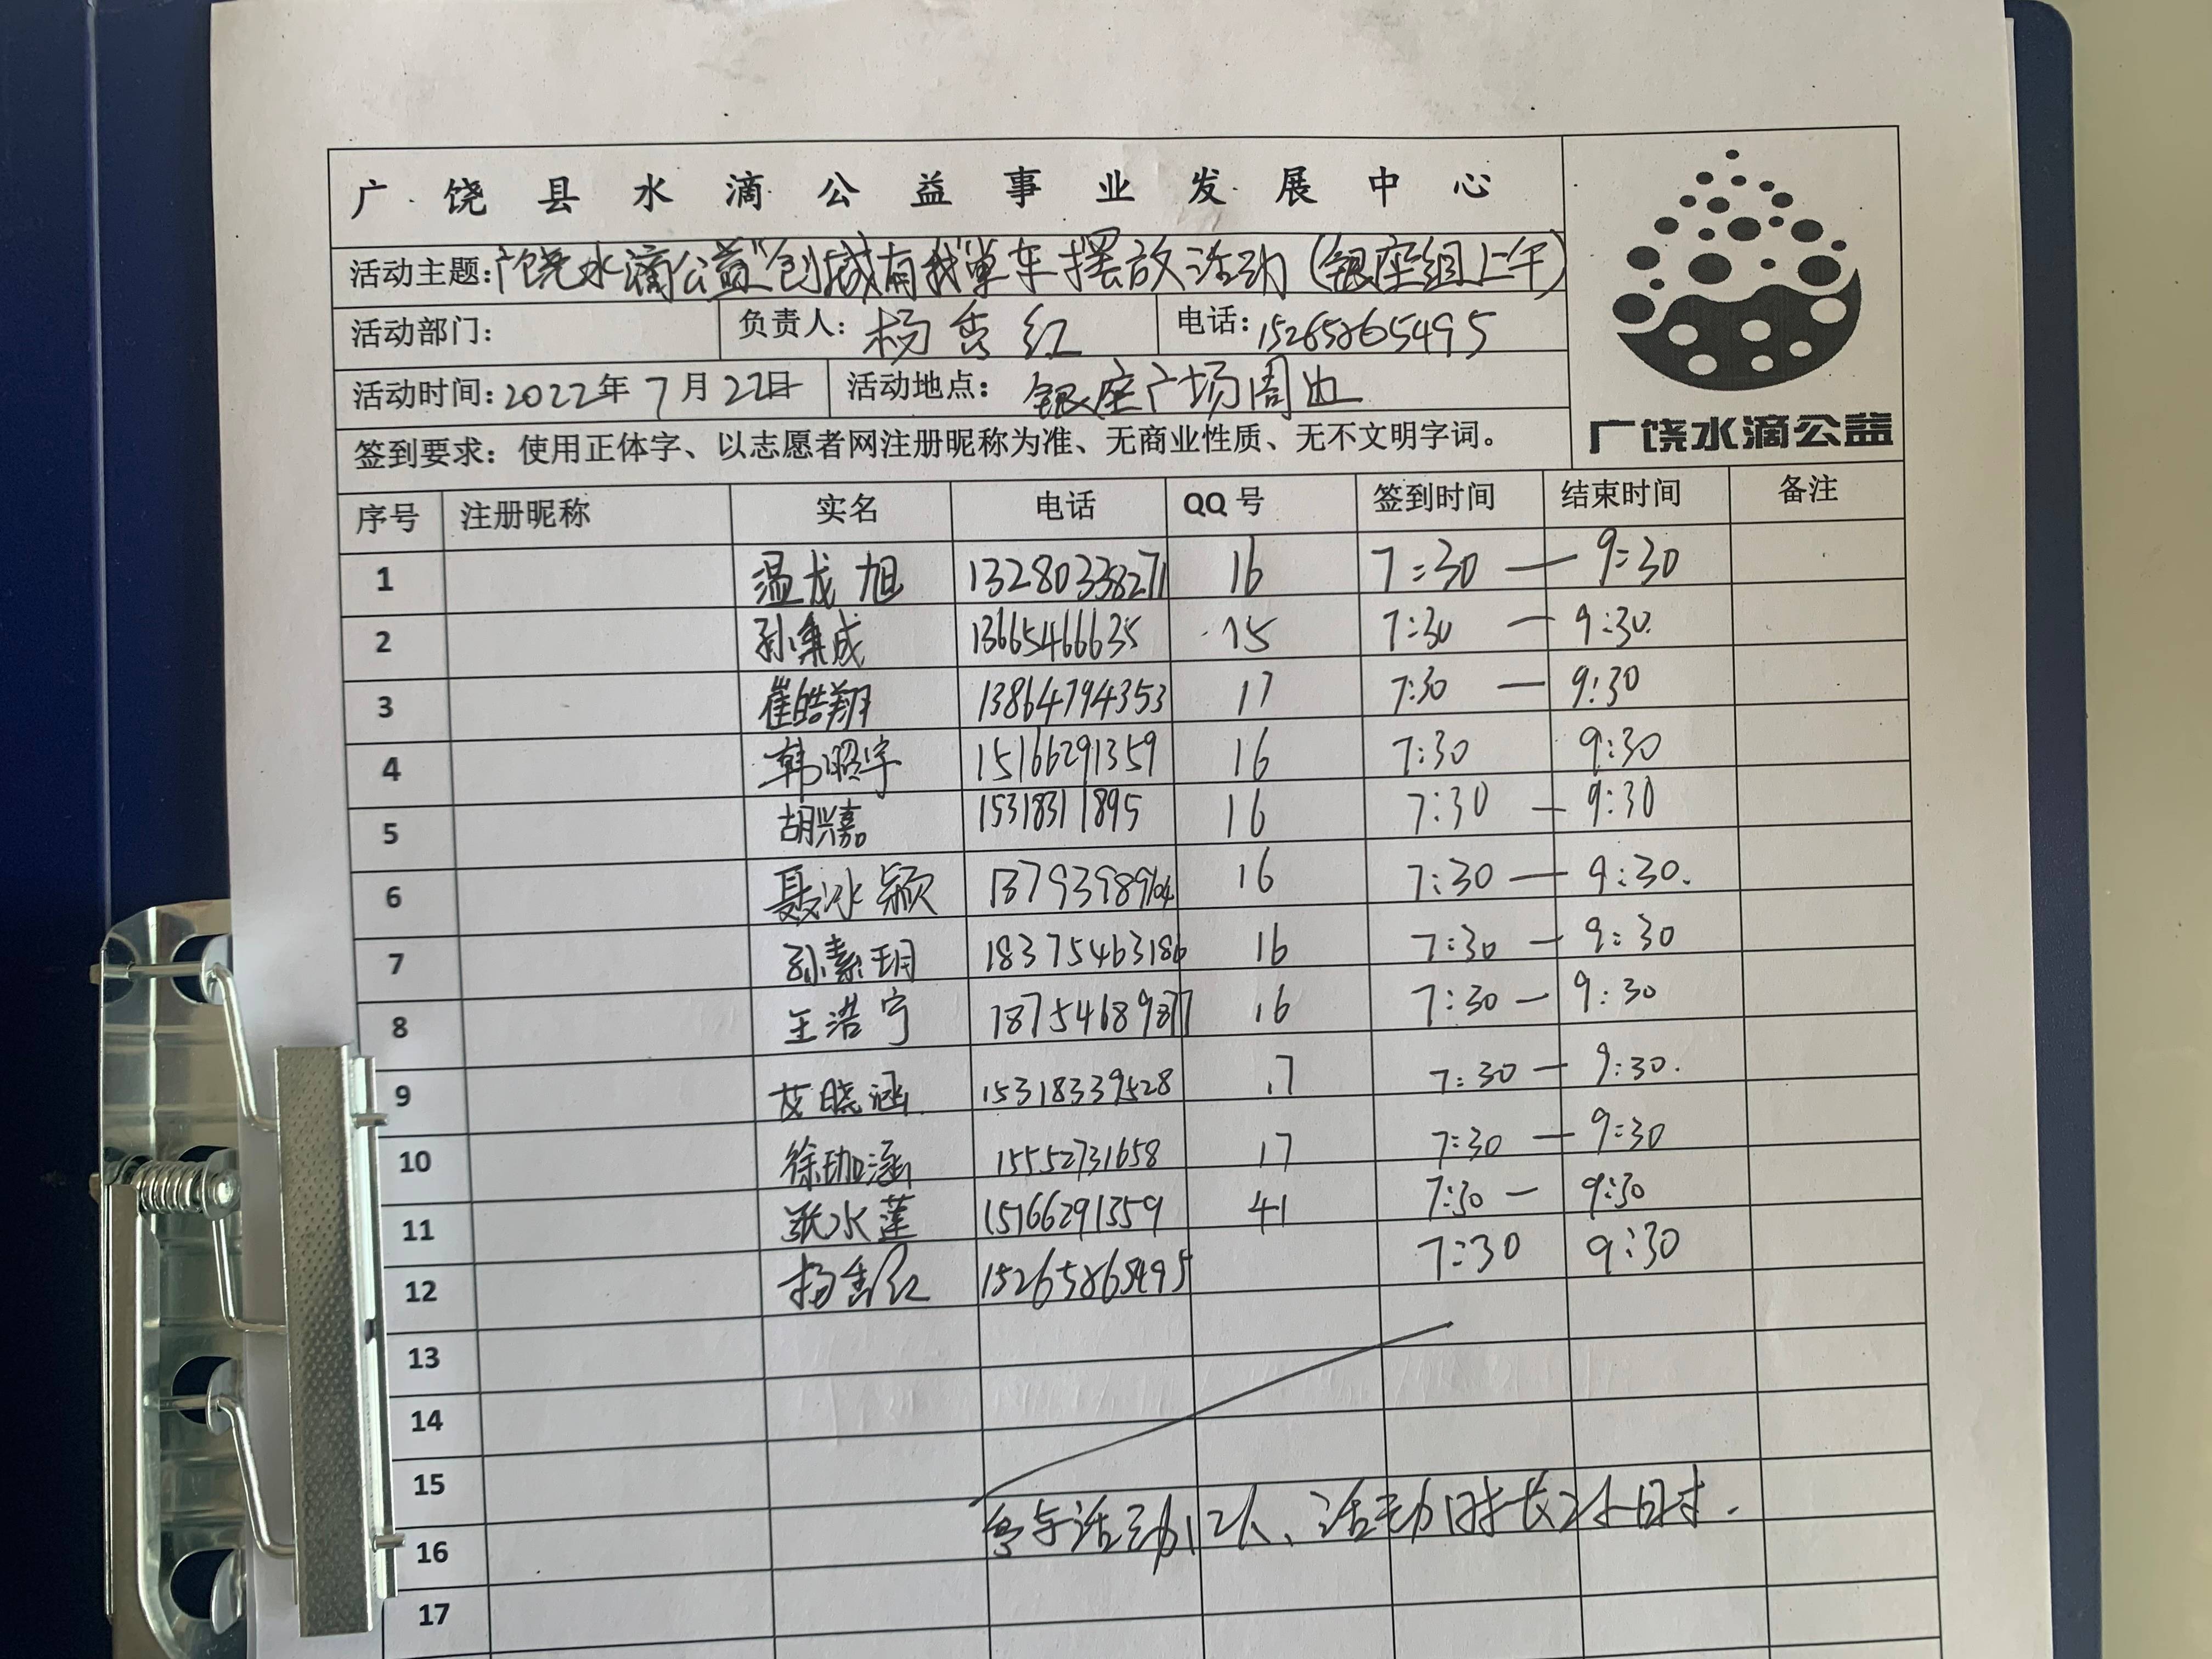 广饶县水滴公益事业发展中心
活动主题:广饶水滴公益"创城有我"单车摆放活动(银座组上午)
活动部门: 负责人: 杨秀红 电话: 15265865495
活动时间: 2022年7月22日 活动地点: 银座广场周边
签到要求: 使用正体字、以志愿者网注册昵称为准、无商业性质、无不文明字词。
广饶水滴公益
序号 注册昵称 实名 电话 QQ号 签到时间 结束时间 备注
1 温龙旭 13280338271 16 7:30 — 9:30
2 孙集成 13665466635 15 7:30 — 9:30
3 崔皓翔 13864794353 17 7:30 — 9:30
4 韩昭宇 15166291359 16 7:30 9:30
5 胡兴嘉 15318311895 16 7:30 — 9:30
6 聂冰颖 16 7:30 — 9:30.
7 孙素玥 18375463186 16 7:30 — 9:30
8 王浩宁 18754689877 16 7:30 — 9:30
9 艾晓涵 15318339528 17 7:30 — 9:30.
10 徐珈涵 15552731658 17 7:30 — 9:30
11 张水莲 15166291359 41 7:30 — 9:30
12 杨秀红 15265865495 7:30 9:30
13
14
15
参与活动12人、活动时长2小时.
16
17